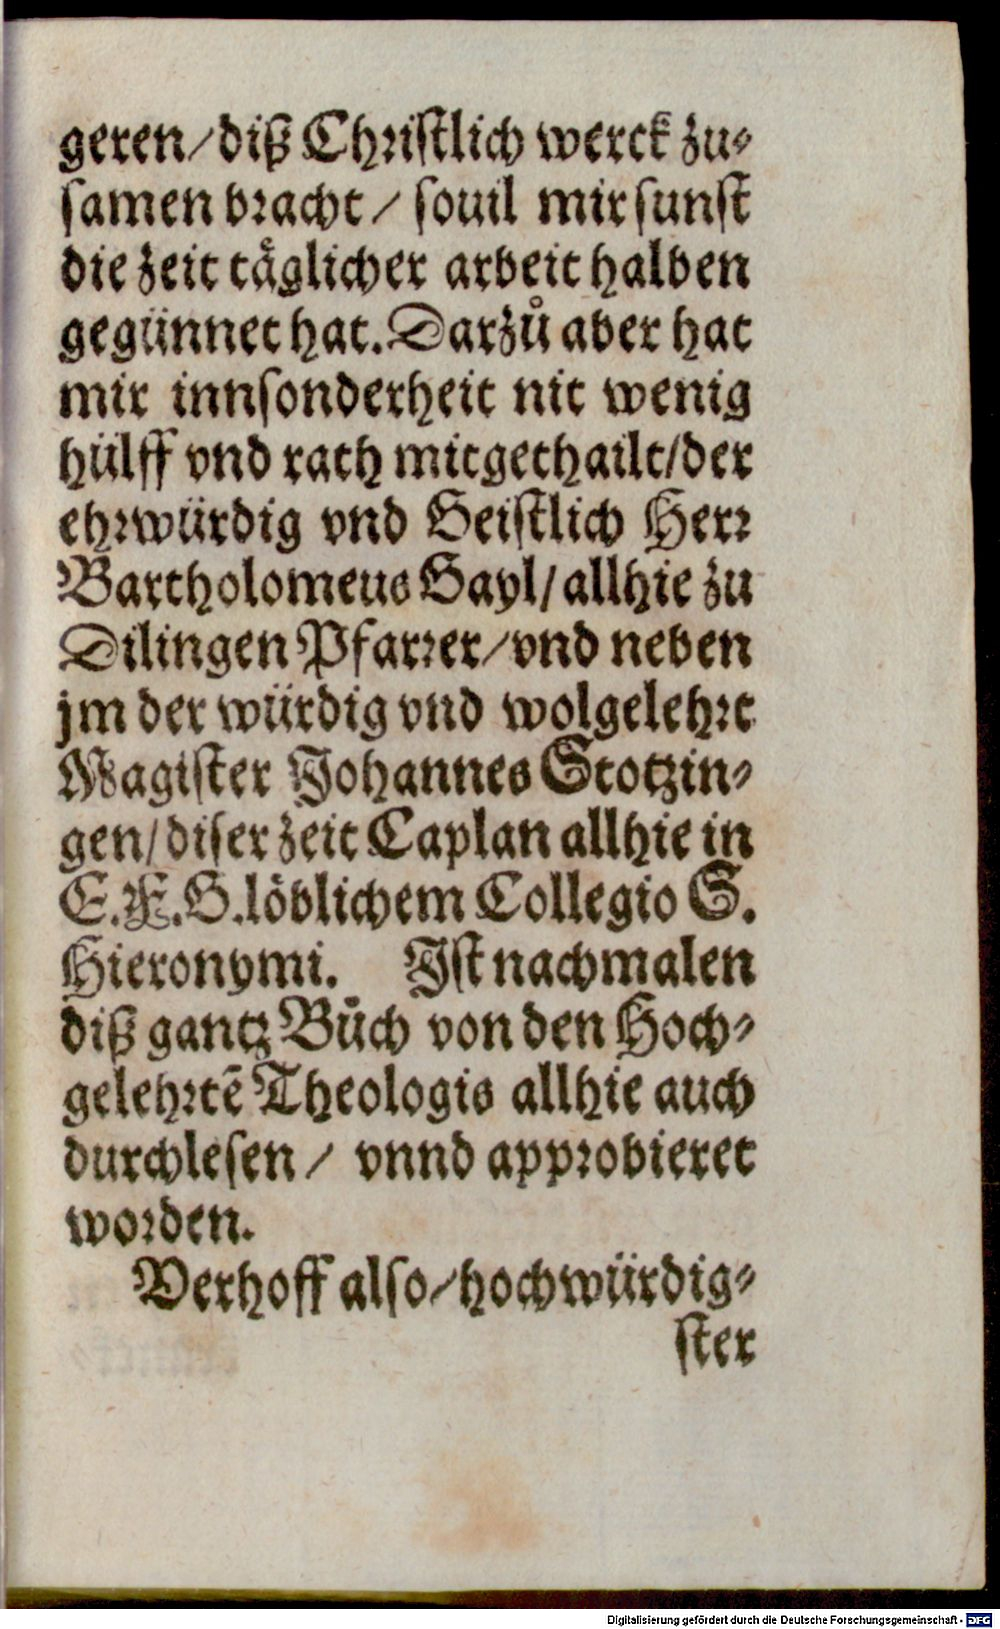 geren/diß Christlich werck zu⸗
samen bracht / souil mir sunst
die zeit täglicher arbeit halben
gegünnet hat. Darzuͦ aber hat
mir innsonderheit nit wenig
hülff vnd rath mitgethailt/der
ehrwürdig vnd Geistlich Herr
Bartholomeus Gayl/allhie zu
Dilingen Pfarrer/vnd neben
jm der würdig vnd wolgelehrt
Magister Johannes Stotzin⸗
gen/diser zeit Caplan allhie in
E.F.G.löblichem Collegio S.
Hieronymi. Ist nachmalen
diß gantz Buͦch von den Hoch⸗
gelehrtẽ Theologis allhie auch
durchlesen / vnnd approbieret
worden.
Verhoff also/hochwürdig⸗
ster
Digitalisierung gefördert durch die Deutsche Forschungsgemeinschaft - DFG